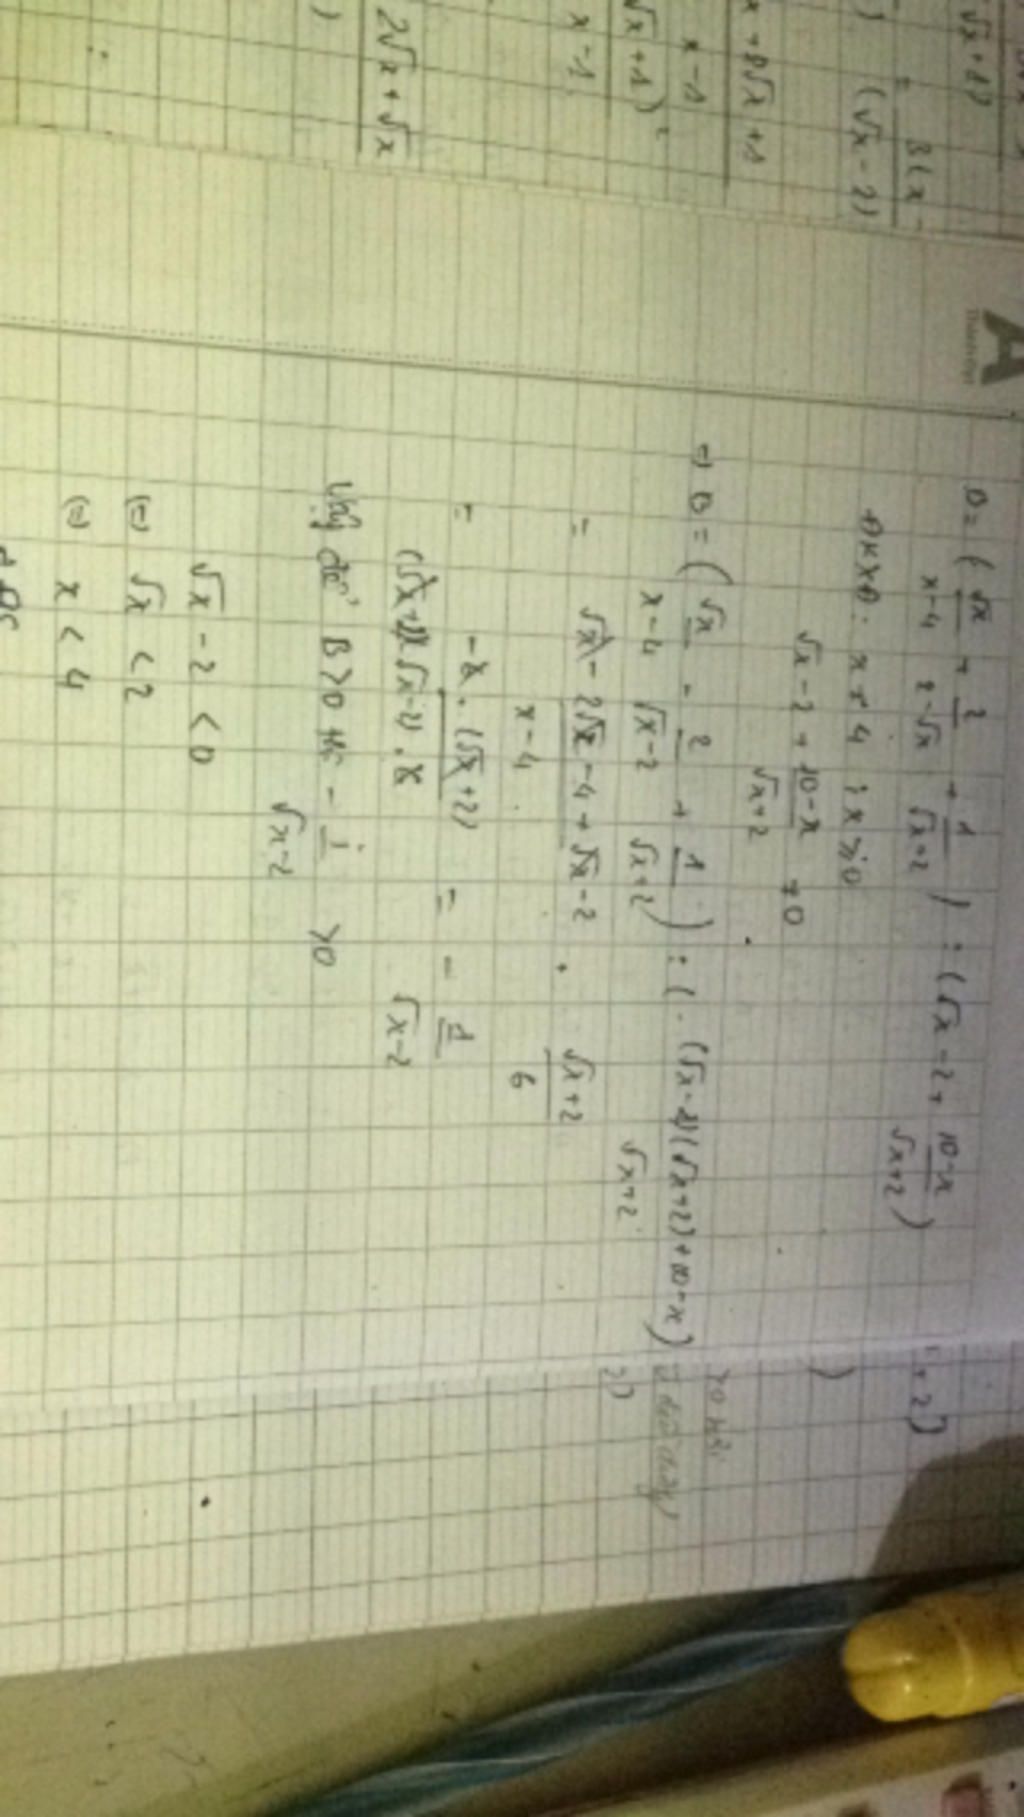 √x + 1)
3(x
(√x - 2)
x + 2√x + 1
x - 1
√x + 1)²
x - 1
2√x + √x
A
B = (√x/(x-4) + 2/(2-√x) + 1/(√x+2)) : (√x - 2 + (10-x)/(√x+2))
ĐKXĐ: x ≠ 4 ; x ≥ 0
√x - 2 + (10-x)/(√x+2) ≠ 0
=> B = (√x/(x-4) - 2/(√x-2) + 1/(√x+2)) : ((√x-2)(√x+2) + 10 - x)/(√x+2)
= (√x - 2√x - 4 + √x - 2)/(x-4) . (√x+2)/6
= -6.(√x+2)/((√x+2)(√x-2).6) = -1/(√x-2)
Vậy để B > 0 thì -1/(√x-2) > 0
√x - 2 < 0
(=) √x < 2
(=) x < 4
+ 2)
)
2)